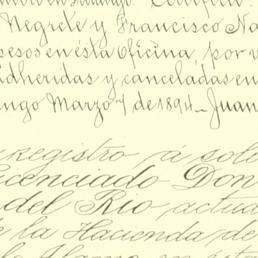 Durango. Certifico
Negrete y Francisco Na
pesos en ésta Oficina, por v
adheridas y canceladas en
ngo Marzo 7 de 1894_ Juan
Registro á soli
icenciado Don
del Rio, actua
de la Hacienda de